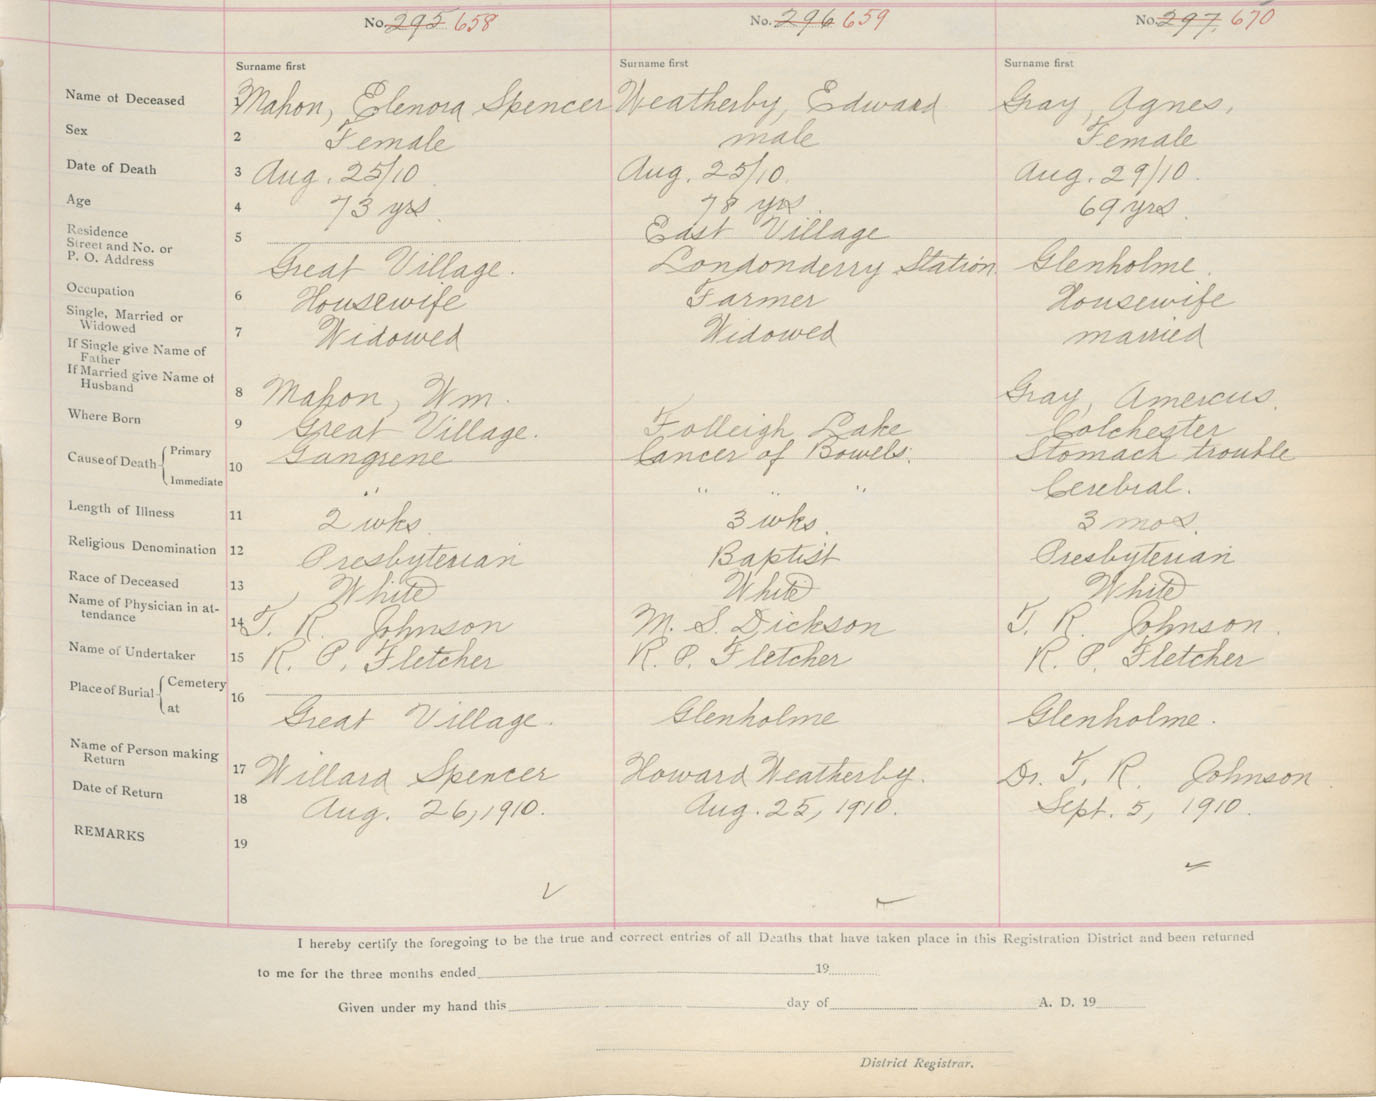 No. 295 658 No. 296 659 No. 297 670
Surname first Surname first Surname first
Name of Deceased 1 Mahon, Elenora Spencer Weatherby, Edward Gray, Agnes,
Sex 2 Female male Female
Date of Death 3 Aug. 25/10. Aug. 25/10. Aug. 29/10.
Age 4 73 yrs. 78 yrs. 69 yrs.
Residence 5 East Village
Street and No. or
P. O. Address Great Village. Londonderry Station Glenholme.
Occupation 6 Housewife Farmer Housewife
Single, Married or
Widowed 7 Widowed Widowed married
If Single give Name of
Father
If Married give Name of
Husband 8 Mahon, Wm. Gray, Amercus.
Where Born 9 Great Village. Folleigh Lake Colchester
Cause of Death { Primary 10 Gangrene Cancer of Bowels. Stomach trouble
Immediate " " " " Cerebral.
Length of Illness 11 2 wks. 3 wks. 3 mos.
Religious Denomination 12 Presbyterian Baptist Presbyterian
Race of Deceased 13 White White White
Name of Physician in at-
tendance 14 T. R. Johnson M. S. Dickson T. R. Johnson.
Name of Undertaker 15 R. P. Fletcher R. P. Fletcher R. P. Fletcher
Place of Burial { Cemetery 16
at Great Village. Glenholme Glenholme.
Name of Person making
Return 17 Willard Spencer Howard Weatherby. Dr. T. R. Johnson.
Date of Return 18 Aug. 26, 1910. Aug. 25, 1910. Sept. 5, 1910.
REMARKS 19
I hereby certify the foregoing to be the true and correct entries of all Deaths that have taken place in this Registration District and been returned
to me for the three months ended 19
Given under my hand this day of A. D. 19
District Registrar.